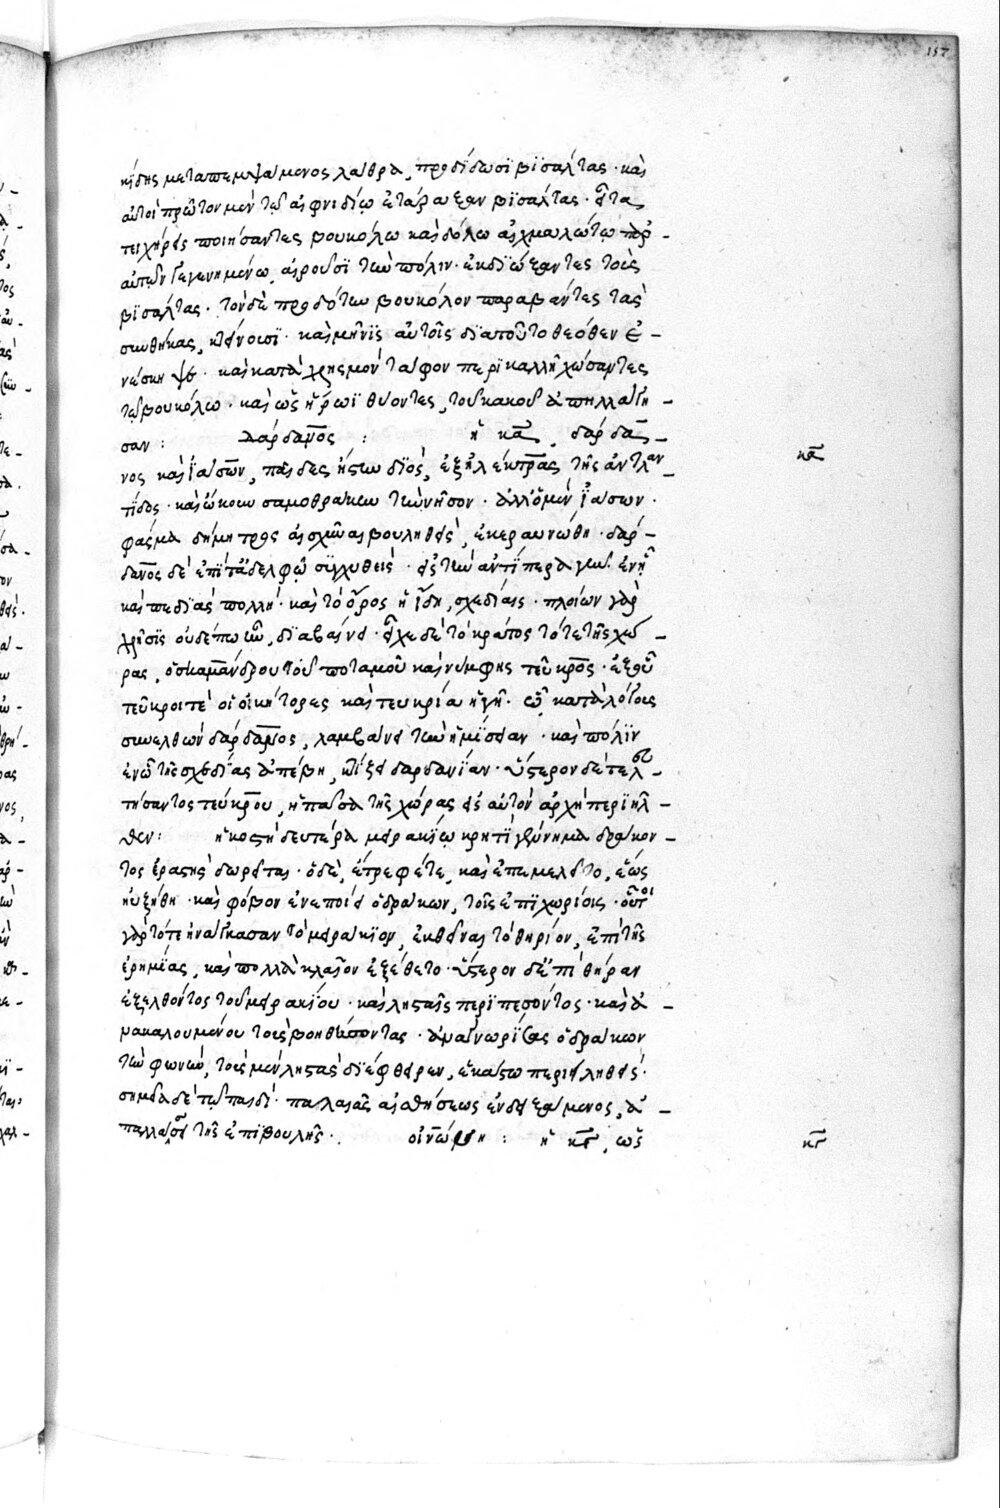 157
κίδης μεταπεμψάμενος λάθρα, προδίδωσι βισάλτας· καὶ
αὐτοὶ πρῶτον μὲν τῷ αἰφνιδίῳ ἐτάραξαν βισάλτας· εἶτα
τειχήρεις ποιήσαντες βουκόλω καὶ δόλω αἰχμαλώτω παρ
αὐτῶν γεγενημένω, αἱροῦσι τὴν πόλιν· ἐκδιώξαντες τοὺς
βισάλτας. τὸν δὲ προδότην βουκόλον παραβάντες τὰς
συνθήκας, κτείνουσι· καὶ μῆνις αὐτοῖς διατοῦτο θεόθεν ἐ–
νέσκηψε· καὶ κατὰ χρησμὸν τάφον περικαλλῆ χώσαντες
τῷ βουκόλω· καὶ ὡς ἥρωϊ θύοντες, τοῦ κακοῦ ἀπηλλάγη–
σαν: δάρδανος: ἡ κα, δάρδα–
νος καὶ ἰασῶν, παῖδες ἤστην διὸς, ἐξ ἠλέκτρας τῆς ἀντλαν–
τίδος· καὶ ᾤκουν σαμοθράκην τὴν νῆσον· ἀλλ' ὁ μὲν ἰάσων
φάσμα δήμητρος αἰσχῦναι βουληθεὶς, ἐκεραυνώθη· δάρ–
δανος δὲ ἐπὶ τἀδελφῷ συγχυθεὶς· εἰς τὴν ἀντίπερα γῆν ἐν ᾗ
καὶ πεδιὰς πολλή· καὶ τὸ ὄρος ἡ ἴδη, σχεδίαις· πλοίων γὰρ
χρῆσις οὐδέπω ἦν, διαβαίνει· εἶχε δὲ τὸ κράτος τότε τῆς χώ–
ρας, ὁ σκαμάνδρου τοῦ ποταμοῦ καὶ νύμφης τεῦκρος· ἐξ οὗ
τεῦκροί τε οἱ οἰκήτορες καὶ τευκρία ἡ γῆ· ᾧ κατὰ λόγους
συνελθὼν δάρδανος, λαμβάνει τὴν ἡμίσειαν· καὶ πόλιν
ἐν ᾧ τῆς σχεδίας ἀπέβη, κτίζει δαρδανίαν· ὕστερον δὲ τελευ–
τήσαντος τεύκρου, ἡ πᾶσα τῆς χώρας εἰς αὐτὸν ἀρχὴ περιῆλ–
θεν: ἡ κοστὴ δευτέρα μειρακίῳ κρητὶ γέννημα δράκον–
τος ἐραστὴς δωρεῖται· ὁ δὲ, ἔτρεφέ τε, καὶ ἐπεμελεῖτο, ἕως
ηὐξήθη· καὶ φόβον ἐνεποίει ὁ δράκων, τοῖς ἐπιχωρίοις· οὗτοι
γὰρ τότε ἠνάγκασαν τὸ μειράκιον, ἐκθεῖναι τὸ θηρίον, ἐπὶ τῆς
ἐρημίας, καὶ πολλὰ κλαῖον ἐξέθετο· ὕστερον δ' ἐπὶ θήραν
ἐξελθόντος τοῦ μειρακίου· καὶ λησταῖς περιπεσόντος· καὶ ἀ–
νακαλουμένου τοὺς βοηθήσοντας· ἀναγνωρίσας ὁ δράκων
τὴν φωνὴν, τοὺς μὲν ληστὰς διέφθειρεν, ἑκάστω περιειληθείς·
σημεῖα δὲ τῷ παιδὶ· παλαιᾶς αἰσθήσεως ἐνδειξάμενος, ἀ–
παλλάσσει τῆς ἐπιβουλῆς· οἰνώνη: ἡ κγ, ὡς
κα
κγ